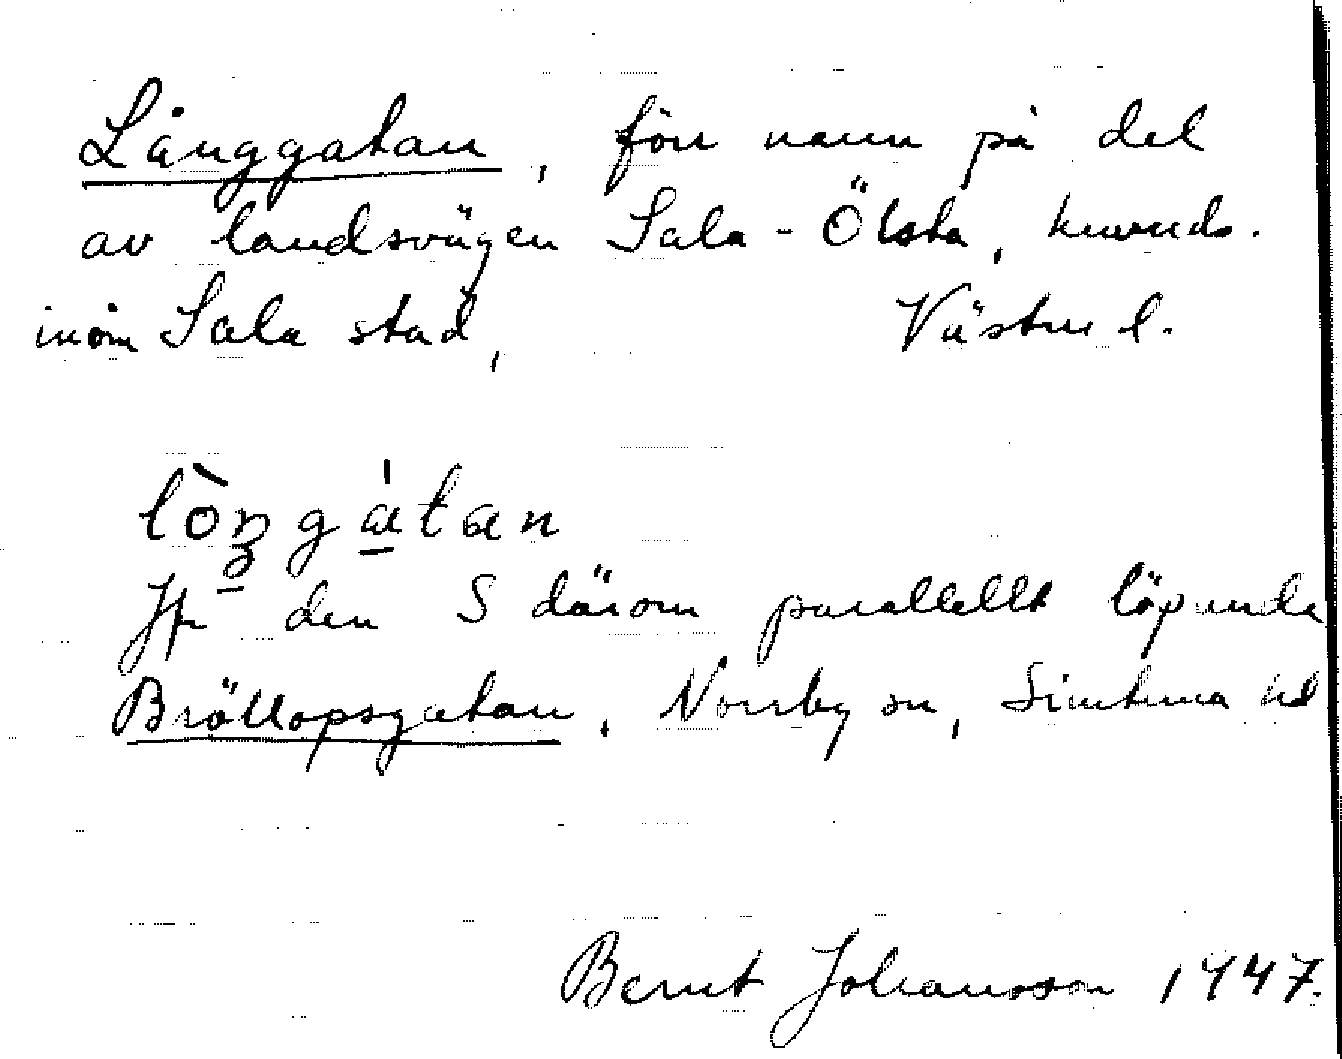 Långgatan, förr namn på del
av landsvägen Sala - Ölsta, huvuds.
inom Sala stad, Västml.
lòŋgátan
Jfr den S därom parallellt löpande
Bröllopsgatan, Norrby sn, Simtuna hd
Bernt Johansson 1947.